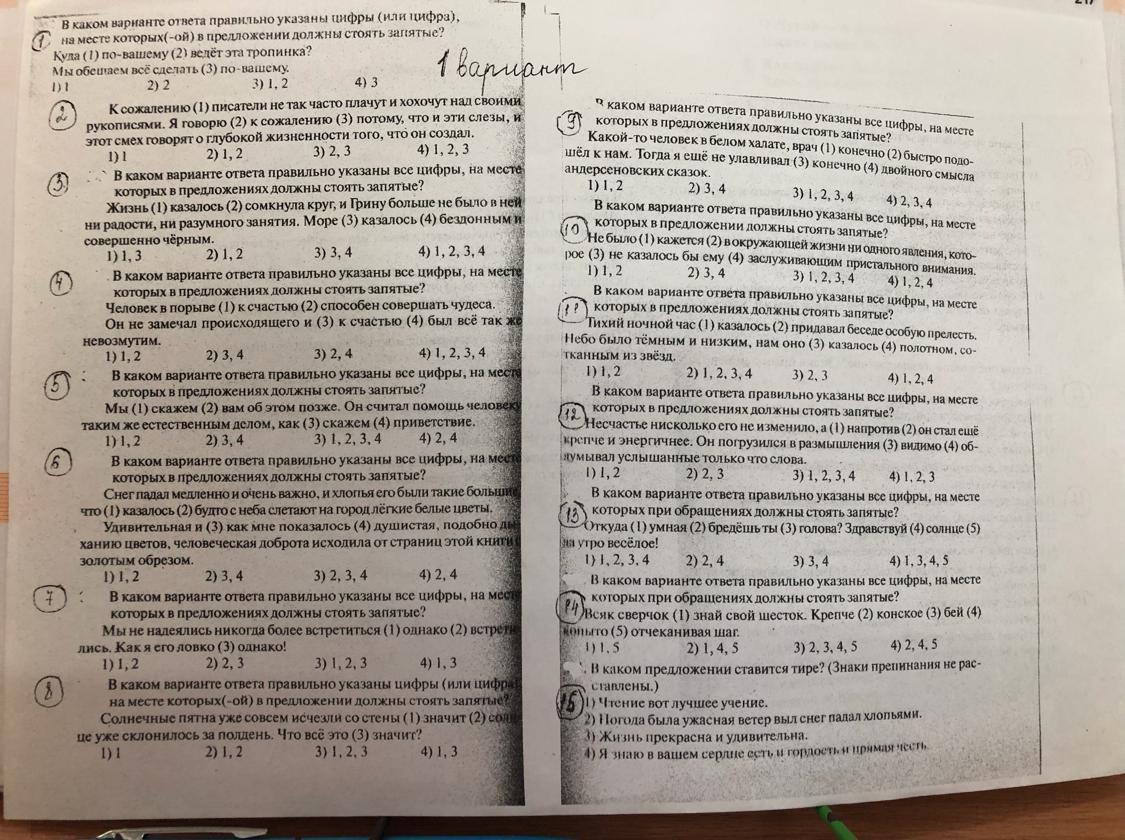 217
1 вариант
1
В каком варианте ответа правильно указаны цифры (или цифра),
на месте которых(-ой) в предложении должны стоять запятые?
Куда (1) по-вашему (2) ведёт эта тропинка?
Мы обещаем всё сделать (3) по-вашему.
1) 1 2) 2 3) 1, 2 4) 3
2
К сожалению (1) писатели не так часто плачут и хохочут над своими
рукописями. Я говорю (2) к сожалению (3) потому, что и эти слезы, и
этот смех говорят о глубокой жизненности того, что он создал.
1) 1 2) 1, 2 3) 2, 3 4) 1, 2, 3
3
В каком варианте ответа правильно указаны все цифры, на месте
которых в предложениях должны стоять запятые?
Жизнь (1) казалось (2) сомкнула круг, и Грину больше не было в ней
ни радости, ни разумного занятия. Море (3) казалось (4) бездонным и
совершенно чёрным.
1) 1, 3 2) 1, 2 3) 3, 4 4) 1, 2, 3, 4
4
В каком варианте ответа правильно указаны все цифры, на месте
которых в предложениях должны стоять запятые?
Человек в порыве (1) к счастью (2) способен совершать чудеса.
Он не замечал происходящего и (3) к счастью (4) был всё так же
невозмутим.
1) 1, 2 2) 3, 4 3) 2, 4 4) 1, 2, 3, 4
5
В каком варианте ответа правильно указаны все цифры, на месте
которых в предложениях должны стоять запятые?
Мы (1) скажем (2) вам об этом позже. Он считал помощь человеку
таким же естественным делом, как (3) скажем (4) приветствие.
1) 1, 2 2) 3, 4 3) 1, 2, 3, 4 4) 2, 4
6
В каком варианте ответа правильно указаны все цифры, на месте
которых в предложениях должны стоять запятые?
Снег падал медленно и очень важно, и хлопья его были такие большие,
что (1) казалось (2) будто с неба слетают на город лёгкие белые цветы.
Удивительная и (3) как мне показалось (4) душистая, подобно ды-
ханию цветов, человеческая доброта исходила от страниц этой книги с
золотым обрезом.
1) 1, 2 2) 3, 4 3) 2, 3, 4 4) 2, 4
7
В каком варианте ответа правильно указаны все цифры, на месте
которых в предложениях должны стоять запятые?
Мы не надеялись никогда более встретиться (1) однако (2) встрети-
лись. Как я его ловко (3) однако!
1) 1, 2 2) 2, 3 3) 1, 2, 3 4) 1, 3
8
В каком варианте ответа правильно указаны цифры (или цифра)
на месте которых(-ой) в предложении должны стоять запятые?
Солнечные пятна уже совсем исчезли со стены (1) значит (2) солн-
це уже склонилось за полдень. Что всё это (3) значит?
1) 1 2) 1, 2 3) 1, 2, 3 4) 1, 3
9
В каком варианте ответа правильно указаны все цифры, на месте
которых в предложениях должны стоять запятые?
Какой-то человек в белом халате, врач (1) конечно (2) быстро подо-
шёл к нам. Тогда я ещё не улавливал (3) конечно (4) двойного смысла
андерсеновских сказок.
1) 1, 2 2) 3, 4 3) 1, 2, 3, 4 4) 2, 3, 4
10
В каком варианте ответа правильно указаны все цифры, на месте
которых в предложении должны стоять запятые?
Не было (1) кажется (2) в окружающей жизни ни одного явления, кото-
рое (3) не казалось бы ему (4) заслуживающим пристального внимания.
1) 1, 2 2) 3, 4 3) 1, 2, 3, 4 4) 1, 2, 4
11
В каком варианте ответа правильно указаны все цифры, на месте
которых в предложениях должны стоять запятые?
Тихий ночной час (1) казалось (2) придавал беседе особую прелесть.
Небо было тёмным и низким, нам оно (3) казалось (4) полотном, со-
тканным из звёзд.
1) 1, 2 2) 1, 2, 3, 4 3) 2, 3 4) 1, 2, 4
12
В каком варианте ответа правильно указаны все цифры, на месте
которых в предложениях должны стоять запятые?
Несчастье нисколько его не изменило, а (1) напротив (2) он стал ещё
крепче и энергичнее. Он погрузился в размышления (3) видимо (4) об-
думывал услышанные только что слова.
1) 1, 2 2) 2, 3 3) 1, 2, 3, 4 4) 1, 2, 3
13
В каком варианте ответа правильно указаны все цифры, на месте
которых при обращениях должны стоять запятые?
Откуда (1) умная (2) бредёшь ты (3) голова? Здравствуй (4) солнце (5)
да утро весёлое!
1) 1, 2, 3, 4 2) 2, 4 3) 3, 4 4) 1, 3, 4, 5
14
В каком варианте ответа правильно указаны все цифры, на месте
которых при обращениях должны стоять запятые?
Всяк сверчок (1) знай свой шесток. Крепче (2) конское (3) бей (4)
копыто (5) отчеканивая шаг.
1) 1, 5 2) 1, 4, 5 3) 2, 3, 4, 5 4) 2, 4, 5
15
В каком предложении ставится тире? (Знаки препинания не рас-
ставлены.)
1) Чтение вот лучшее учение.
2) Погода была ужасная ветер выл снег падал хлопьями.
3) Жизнь прекрасна и удивительна.
4) Я знаю в вашем сердце есть и гордость и прямая честь.